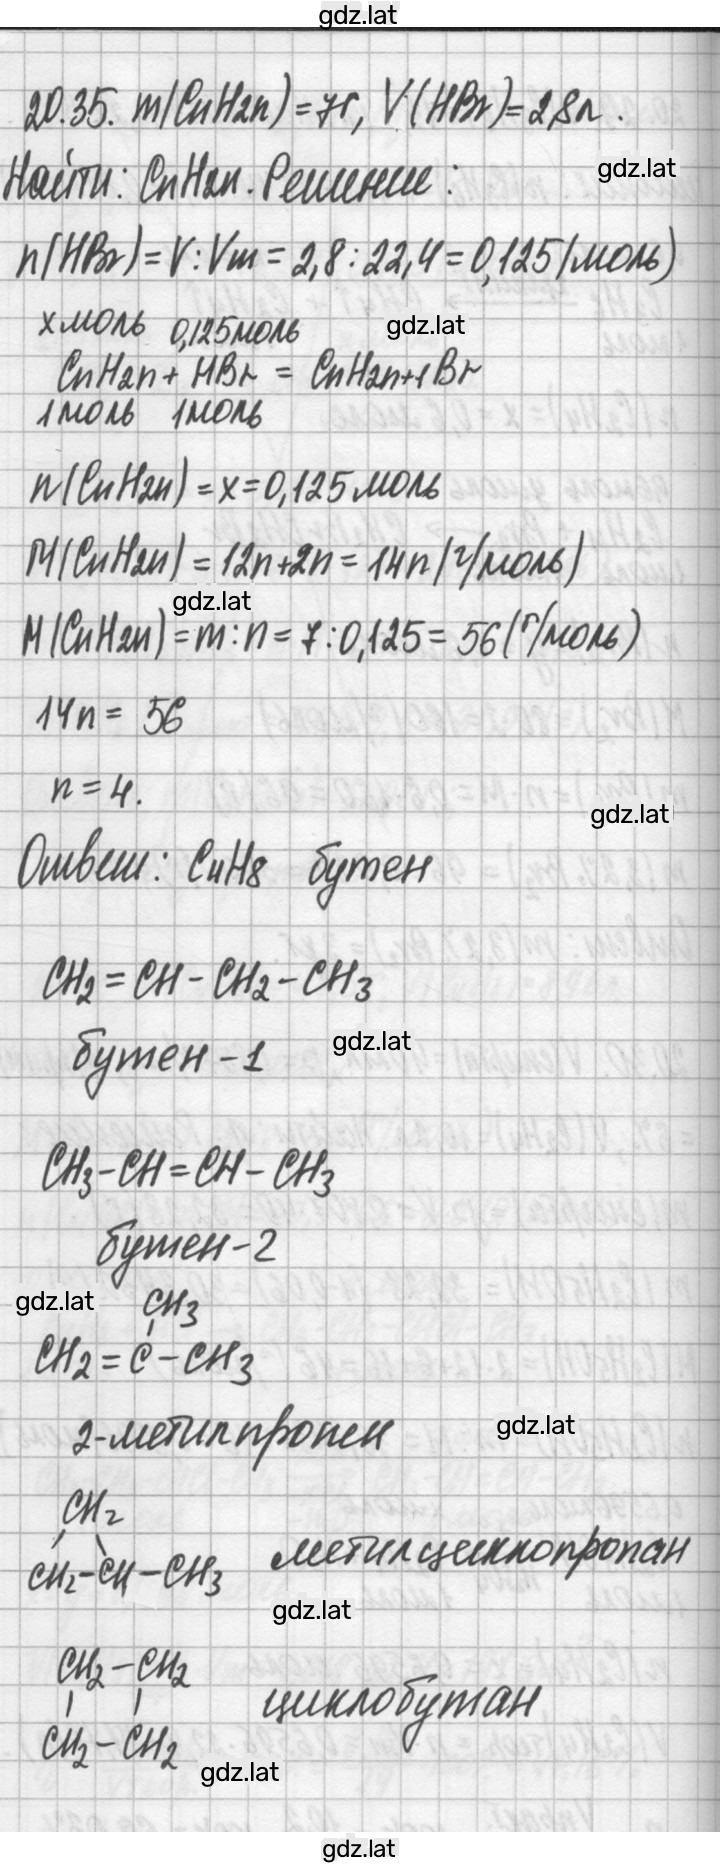 gdz.lat
20.35. m(CnH2n) = 7г, V(HBr) = 2,8л.
gdz.lat
Найти: CnH2n. Решение:
n(HBr) = V : Vm = 2,8 : 22,4 = 0,125 (моль)
x моль 0,125 моль
gdz.lat
CnH2n + HBr = CnH2n+1Br
1 моль 1 моль
n(CnH2n) = x = 0,125 моль
M(CnH2n) = 12n+2n = 14n (г/моль)
gdz.lat
M(CnH2n) = m : n = 7 : 0,125 = 56 (г/моль)
14n = 56
n = 4.
gdz.lat
Ответ: C4H8 бутен
CH2 = CH - CH2 - CH3
бутен - 1
gdz.lat
CH3 - CH = CH - CH3
бутен - 2
gdz.lat
CH3
CH2 = C - CH3
2-метилпропен
gdz.lat
CH2
CH2 - CH - CH3 метилциклопропан
gdz.lat
CH2 - CH2
циклобутан
CH2 - CH2
gdz.lat
gdz.lat